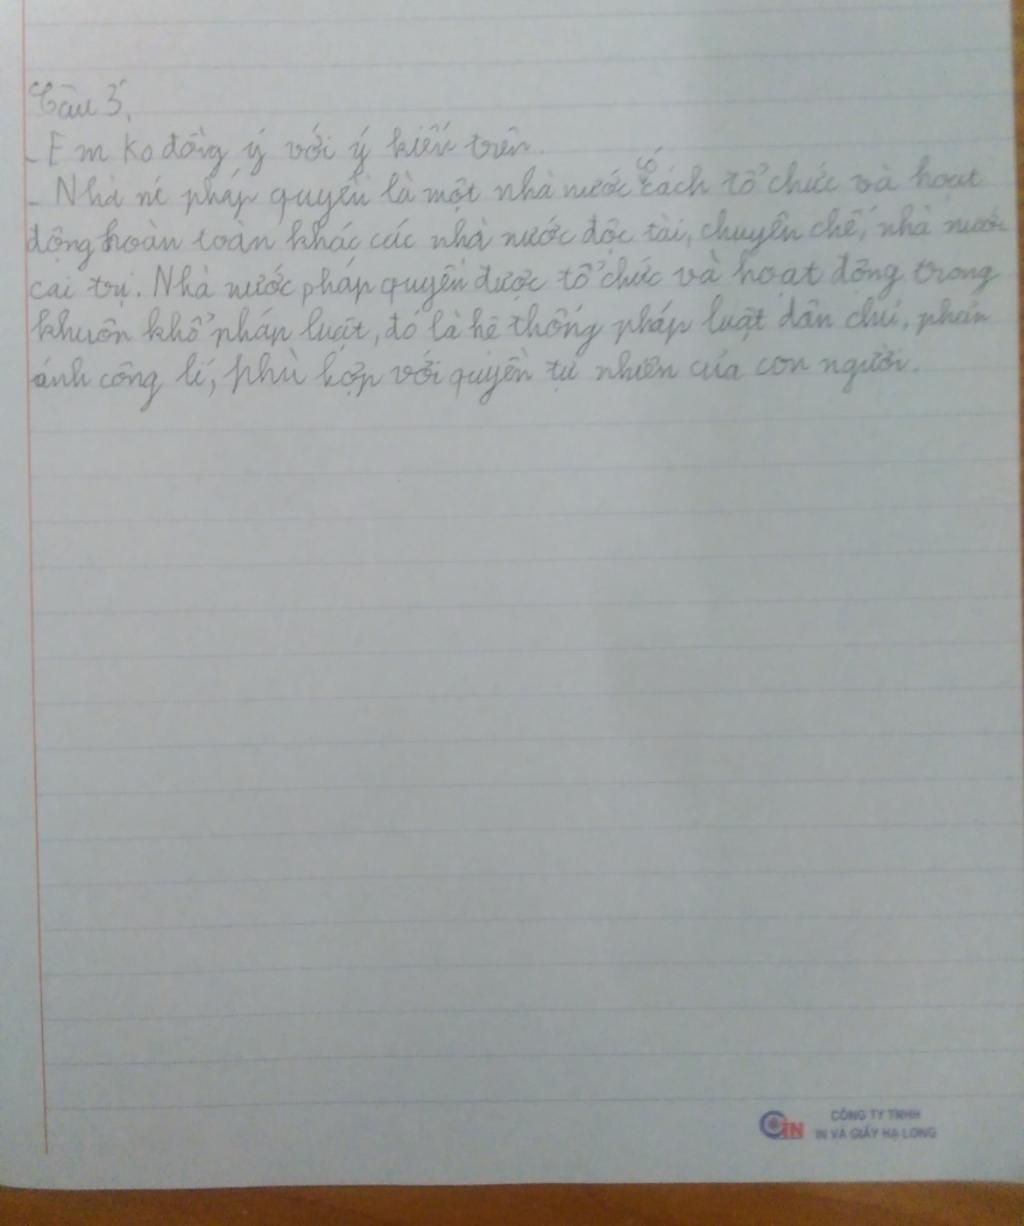 Câu 3,
- Em ko đồng ý với ý kiến trên.
- Nhà nc pháp quyền là một nhà nước có cách tổ chức và hoạt
động hoàn toàn khác các nhà nước độc tài, chuyên chế, nhà nước
cai trị. Nhà nước pháp quyền được tổ chức và hoạt động trong
khuôn khổ pháp luật, đó là hệ thống pháp luật dân chủ, phản
ánh công lí, phù hợp với quyền tự nhiên của con người.
CIN
CÔNG TY TNHH
IN VÀ GIẤY HẠ LONG